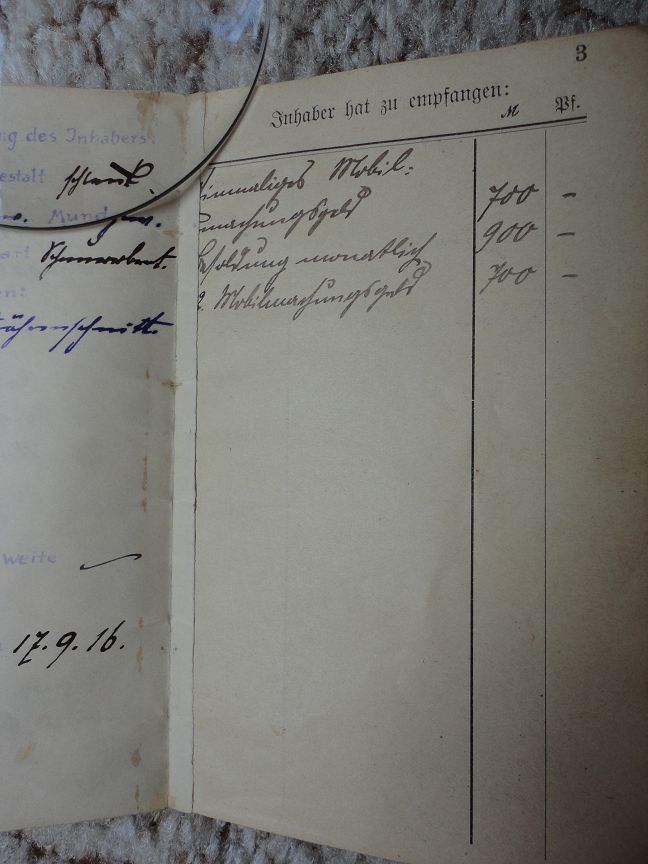 ng des Inhabers:
estalt schlank.
w. Mund gew.
art Schnurrbart.
en:
weite
17.9.16.
3
Inhaber hat zu empfangen:
M Pf.
Einmaliges Mobil-
machungsgeld 700 –
Besoldung monatlich 900 –
2. Mobilmachungsgeld 700 –